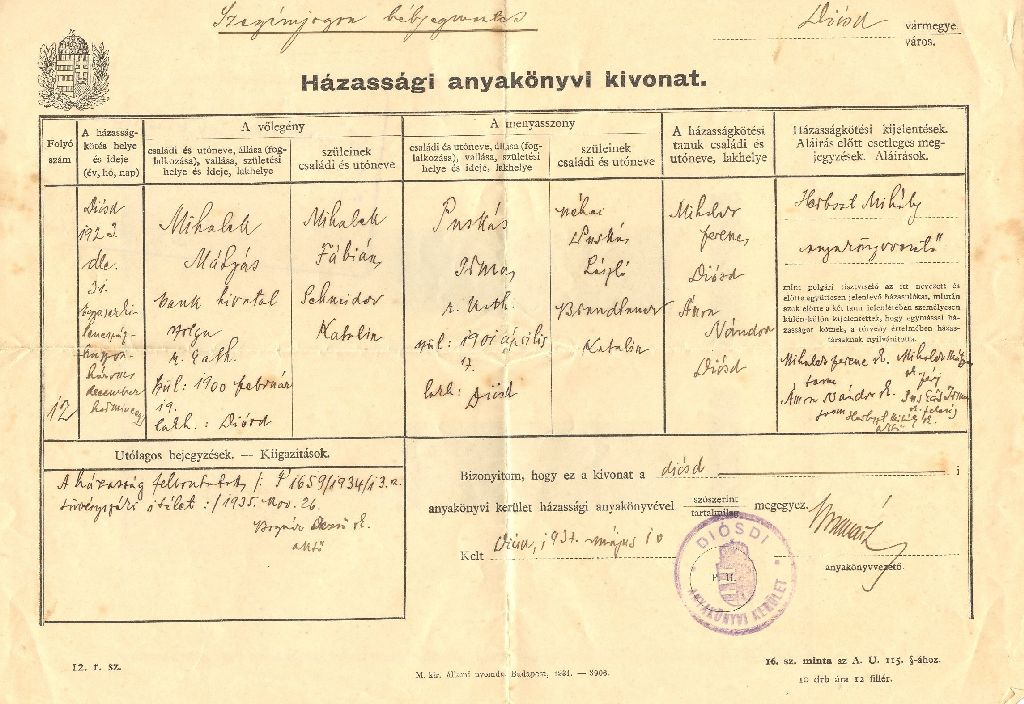 Szegényjogon bélyegmentes
Diósd vármegye
város.
Házassági anyakönyvi kivonat.
Folyó
szám
A házasság-
kötés helye
és ideje
(év, hó, nap)
A vőlegény
családi és utóneve, állása (fog-
lalkozása), vallása, születési
helye és ideje, lakhelye
szüleinek
családi és utóneve
A menyasszony
családi és utóneve, állása (fog-
lalkozása), vallása, születési
helye és ideje, lakhelye
szüleinek
családi és utóneve
A házasságkötési
tanuk családi és
utóneve, lakhelye
Házasságkötési kijelentések.
Aláirás előtt esetleges meg-
jegyzések. Aláirások.
12
Diósd
1923.
dec.
31.
december
Mihalek
Mátyás
bank hivatal
szolga
r. kath.
szül: 1900 február
19.
lakh.: Diósd
Mihalek
Fábián,
Schneider
Katalin
Puskás
Irma,
r. kath.
szül: 1901 április
17.
lakh: Diósd
néhai
Puskás
László
Brandtner
Katalin
Mihalek
ferenc,
Diósd
Áron
Nándor
Diósd
Herbszt Mihály
anyakönyvvezető
mint polgári tisztviselő az itt nevezett és
előtte együttesen jelenlevő házasulókat, miután
azok előtte a két tanu jelenlétében személyesen
külön-külön kijelentették, hogy egymással há-
zasságot kötnek, a törvény értelmében házas-
társaknak nyilvánította.
Mihalek ferenc sk. Mihalek Mátyás
tanu sk. férj
Áron Nándor sk. Puskás Irma
tanu sk. feleség
Herbszt Mihály sk.
Utólagos bejegyzések. — Kiigazitások.
A házasság felbontatott /: P 1659/1934/13. sz.
törvényszéki itélet :/ 1935. nov. 26.
Bognár Dezső sk.
Bizonyitom, hogy ez a kivonat a diósd i
anyakönyvi kerület házassági anyakönyvével szószerint megegyez.
tartalmilag
Kelt május 10
anyakönyvvezető.
DIÓSDI
P. H.
ANYAKÖNYVI KERÜLET
12. r. sz.
M. kir. állami nyomda, Budapest, 1931. — 3906.
16. sz. minta az A. U. 115. §-ához.
10 drb ára 12 fillér.